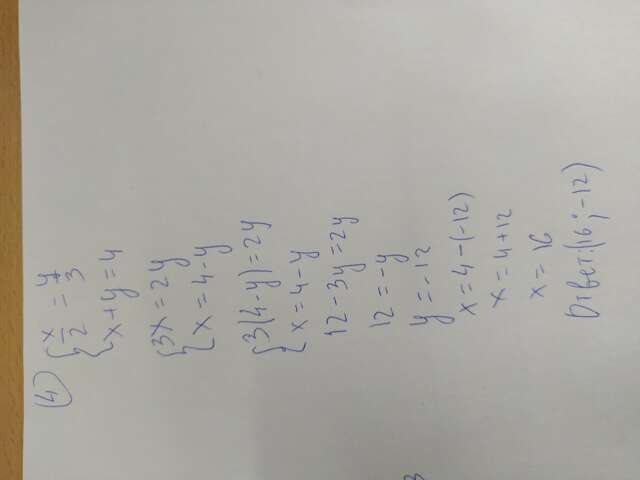 ④
{ x/2 = y/3
x + y = 4
{ 3x = 2y
x = 4 - y
{ 3(4 - y) = 2y
x = 4 - y
12 - 3y = 2y
12 = -y
y = -12
x = 4 - (-12)
x = 4 + 12
x = 16
Ответ: (16; -12)